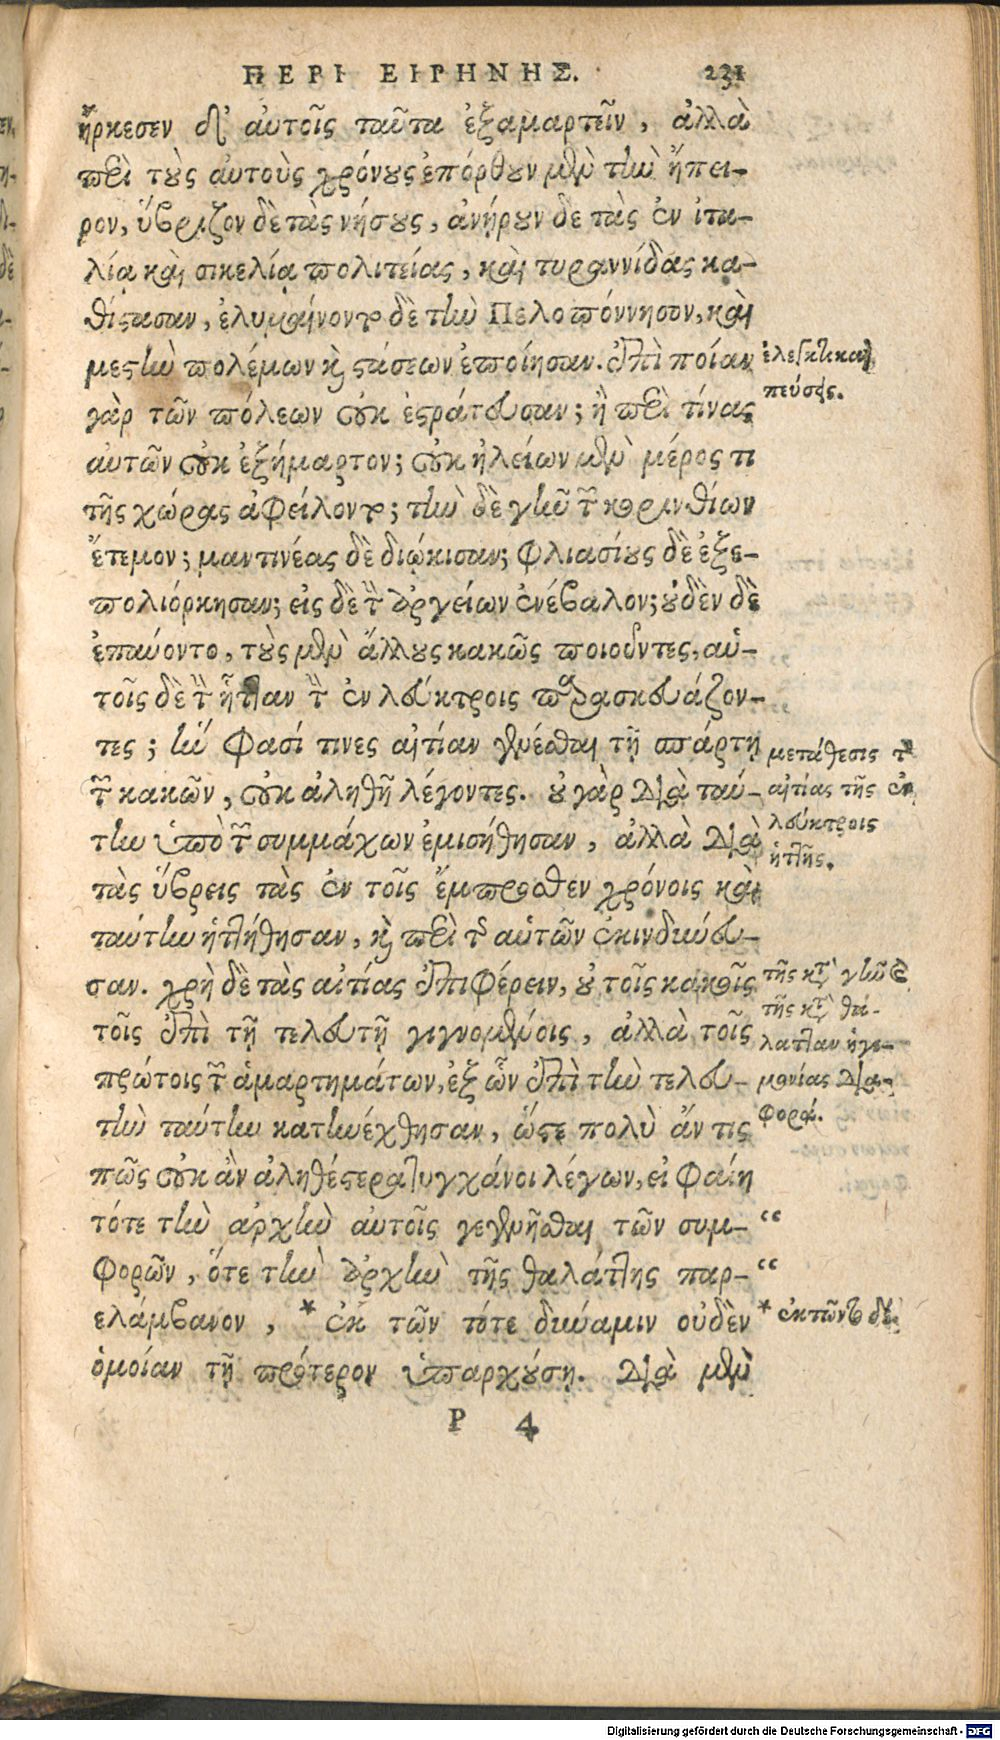 ΠΕΡΙ ΕΙΡΗΝΗΣ. 231
ἤρκεσεν δ' αὐτοῖς ταῦτα ἐξαμαρτεῖν, ἀλλὰ
περὶ τοὺς αὐτοὺς χρόνους ἐπόρθουν μὲν τὴν ἤπει-
ρον, ὕβριζον δὲ τὰς νήσους, ἀνῄρουν δὲ τὰς ἐν ἰτα-
λίᾳ καὶ σικελίᾳ πολιτείας, καὶ τυραννίδας κα-
θίστασαν, ἐλυμαίνοντο δὲ τὴν Πελοπόννησον, καὶ
μεστὴν πολέμων καὶ στάσεων ἐποίησαν. ἐπὶ ποίαν
γὰρ τῶν πόλεων οὐκ ἐστράτευσαν; ἢ περὶ τίνας
αὐτῶν οὐκ ἐξήμαρτον; οὐκ ἠλείων μὲν μέρος τι
τῆς χώρας ἀφείλοντο; τὴν δὲ γῆν τῶν κορινθίων
ἔτεμον; μαντινέας δὲ διῴκισαν; Φλιασίους δὲ ἐξε-
πολιόρκησαν; εἰς δὲ τὴν ἀργείων ἐνέβαλον; οὐδὲν δὲ
ἐπαύοντο, τοὺς μὲν ἄλλους κακῶς ποιοῦντες, αὑ-
τοῖς δὲ τὴν ἧτταν τὴν ἐν λεύκτροις παρασκευάζον-
τες; ἣν φασί τινες αἰτίαν γενέσθαι τῇ σπάρτῃ
τῶν κακῶν, οὐκ ἀληθῆ λέγοντες. οὐ γὰρ διὰ ταύ-
την ὑπὸ τῶν συμμάχων ἐμισήθησαν, ἀλλὰ διὰ
τὰς ὕβρεις τὰς ἐν τοῖς ἔμπροσθεν χρόνοις καὶ
ταύτην ἡττήθησαν, καὶ περὶ τῆς αὑτῶν ἐκινδύνευ-
σαν. χρὴ δὲ τὰς αἰτίας ἐπιφέρειν, οὐ τοῖς κακοῖς
τοῖς ἐπὶ τῇ τελευτῇ γιγνομένοις, ἀλλὰ τοῖς
πρώτοις τῶν ἁμαρτημάτων, ἐξ ὧν ἐπὶ τὴν τελευ-
τὴν ταύτην κατηνέχθησαν, ὥστε πολὺ ἄν τις
πῶς οὐκ ἂν ἀληθέστερα τυγχάνοι λέγων, εἰ φαίη
τότε τὴν ἀρχὴν αὐτοῖς γεγενῆσθαι τῶν συμ- “
φορῶν, ὅτε τὴν ἀρχὴν τῆς θαλάττης παρ- “
ελάμβανον, * ἐκ τῶν τότε δύναμιν οὐδὲν
ὁμοίαν τῇ πρότερον ὑπαρχούσῃ. διὰ μὲν
P 4
ἐλεγκτικαὶ
πεύσεις.
μετάθεσις τῆς
αἰτίας τῆς ἐν
λεύκτροις
ἥττης.
τῆς κατὰ γῆν καὶ
τῆς κατὰ θά-
λατταν ἡγε-
μονίας δια-
φορά.